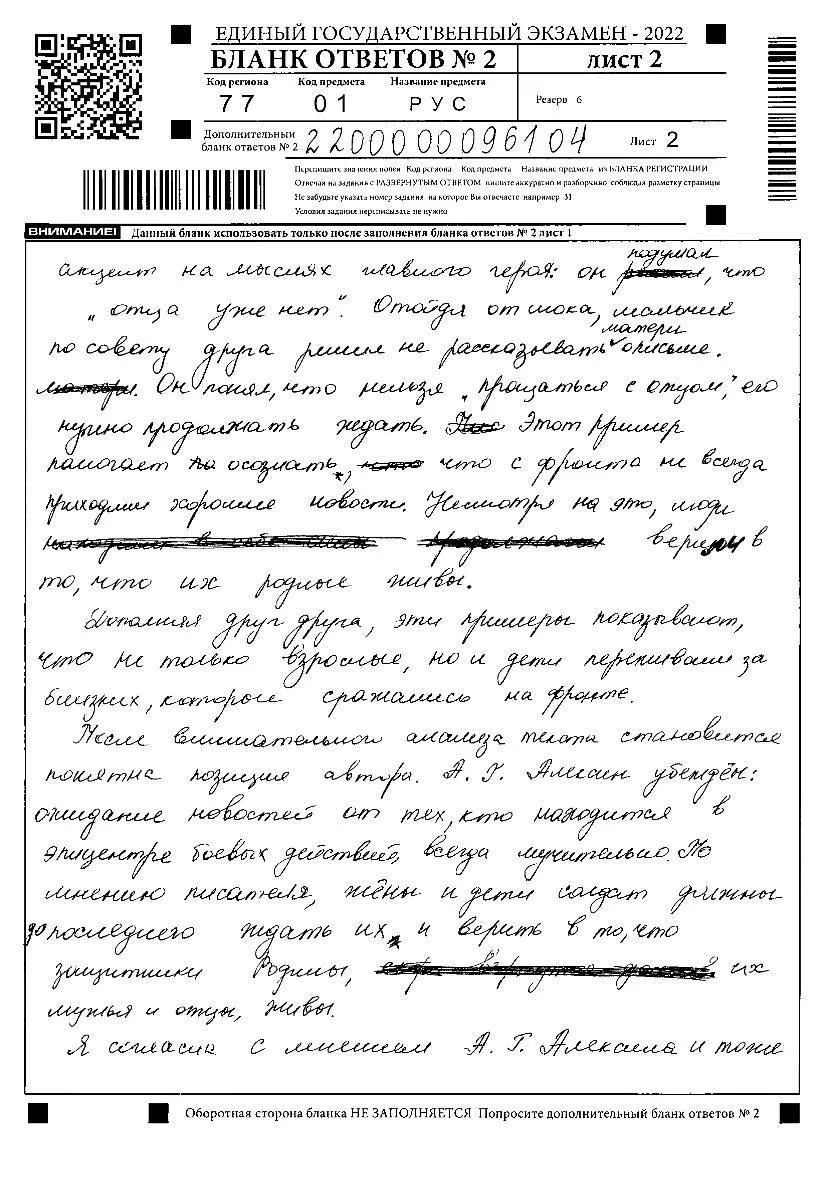 ЕДИНЫЙ ГОСУДАРСТВЕННЫЙ ЭКЗАМЕН - 2022
БЛАНК ОТВЕТОВ № 2
лист 2
Код региона Код предмета Название предмета
77 01 РУС
Резерв 6
Дополнительный бланк ответов № 2 2200000096104 Лист 2
Перепишите значения полей Код региона Код предмета Название предмета из БЛАНКА РЕГИСТРАЦИИ
Отвечая на задания с РАЗВЕРНУТЫМ ОТВЕТОМ пишите аккуратно и разборчиво соблюдая разметку страницы
Не забудьте указать номер задания на которое Вы отвечаете например 31
Условия задания переписывать не нужно
ВНИМАНИЕ! Данный бланк использовать только после заполнения бланка ответов № 2 лист 1
акцент на мыслях главного героя: он подумал, что
„отца уже нет". Отойдя от шока, мальчик
по совету друга решил не рассказывать матери о письме.
Он понял, что нельзя „прощаться с отцом", его
нужно продолжать ждать. Этот пример
помогает осознать, что с фронта не всегда
приходили хорошие новости. Несмотря на это, люди
верили в
то, что их родные живы.
Дополняя друг друга, эти примеры показывают,
что не только взрослые, но и дети переживали за
близких, которые сражались на фронте.
После внимательного анализа текста становится
понятна позиция автора. А. Г. Алексин убеждён:
ожидание новостей от тех, кто находится в
эпицентре боевых действий, всегда мучительно. По
мнению писателя, жёны и дети солдат должны
до последнего ждать их и верить в то, что
защитники Родины, их
мужья и отцы, живы.
Я согласна с мнением А. Г. Алексина и тоже
Оборотная сторона бланка НЕ ЗАПОЛНЯЕТСЯ Попросите дополнительный бланк ответов № 2